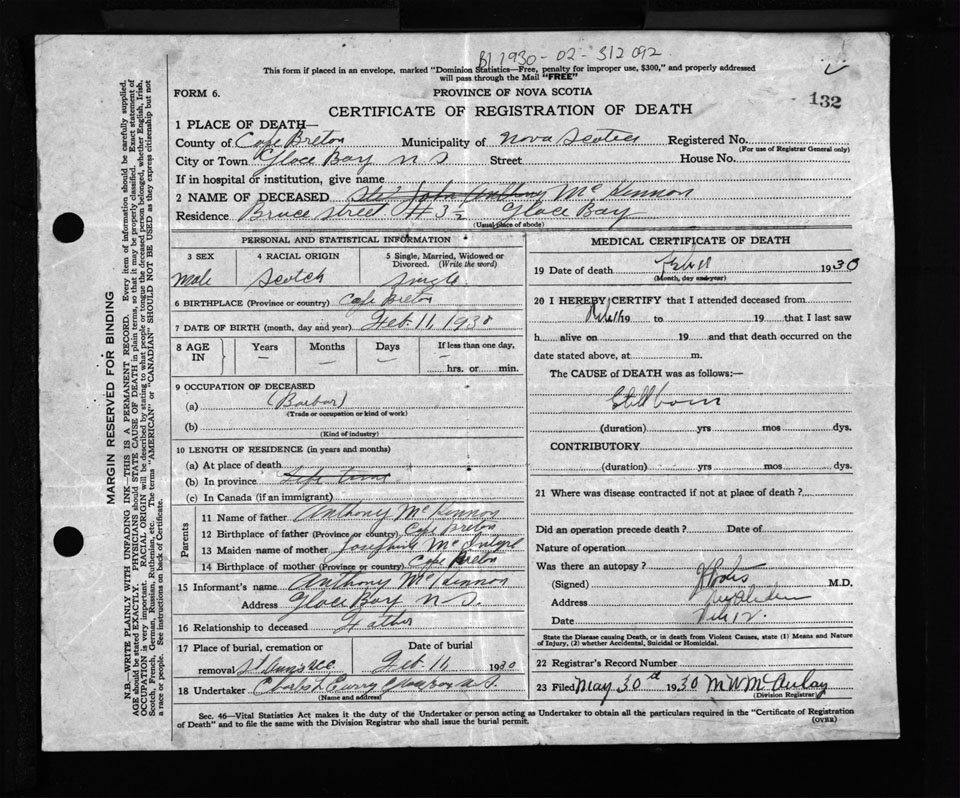 B1 1930-02-312092
This form if placed in an envelope, marked "Dominion Statistics—Free, penalty for improper use, $300," and properly addressed
will pass through the Mail "FREE"
FORM 6.
PROVINCE OF NOVA SCOTIA
132
CERTIFICATE OF REGISTRATION OF DEATH
1 PLACE OF DEATH—
County of Cape Breton Municipality of Nova Scotia Registered No.
(For use of Registrar General only)
City or Town Glace Bay N S Street House No.
If in hospital or institution, give name
2 NAME OF DECEASED John Anthony McKinnon
Residence Bruce Street # 3½ Glace Bay
(Usual place of abode)
PERSONAL AND STATISTICAL INFORMATION
3 SEX 4 RACIAL ORIGIN 5 Single, Married, Widowed or
Divorced. (Write the word)
Male Scotch Single
6 BIRTHPLACE (Province or country) Cape Breton
7 DATE OF BIRTH (month, day and year) Feb. 11, 1930
8 AGE IN Years Months Days If less than one day,
— — — hrs. or min.
9 OCCUPATION OF DECEASED
(a)
(Trade or occupation or kind of work)
(b)
(Kind of industry)
10 LENGTH OF RESIDENCE (in years and months)
(a) At place of death
(b) In province Life time
(c) In Canada (if an immigrant)
Parents
11 Name of father Anthony McKinnon
12 Birthplace of father (Province or country) Cape Breton
13 Maiden name of mother Josephine McIntyre
14 Birthplace of mother (Province or country) Cape Breton
15 Informant's name Anthony McKinnon
Address Glace Bay N.S.
16 Relationship to deceased Father
17 Place of burial, cremation or Date of burial
removal Feb. 11 1930
18 Undertaker Glace Bay N.S.
(Name and address)
MEDICAL CERTIFICATE OF DEATH
19 Date of death 1930
(Month, day and year)
20 I HEREBY CERTIFY that I attended deceased from
19 to 19 that I last saw
h alive on 19 and that death occurred on the
date stated above, at m.
The CAUSE of DEATH was as follows:—
Stillborn
(duration) yrs mos dys.
CONTRIBUTORY
(duration) yrs mos dys.
21 Where was disease contracted if not at place of death?
Did an operation precede death? Date of
Nature of operation
Was there an autopsy?
(Signed) M.D.
Address
Date 12.
State the Disease causing Death, or in death from Violent Causes, state (1) Means and Nature
of Injury, (2) whether Accidental, Suicidal or Homicidal.
22 Registrar's Record Number
23 Filed May 30th 1930 M W McAulay
(Division Registrar)
Sec. 46—Vital Statistics Act makes it the duty of the Undertaker or person acting as Undertaker to obtain all the particulars required in the "Certificate of Registration
of Death" and to file the same with the Division Registrar who shall issue the burial permit.
(OVER)
MARGIN RESERVED FOR BINDING
N.B.—WRITE PLAINLY WITH UNFADING INK—THIS IS A PERMANENT RECORD. Every item of information should be carefully supplied.
AGE should be stated EXACTLY. PHYSICIANS should STATE CAUSE OF DEATH in plain terms, so that it may be properly classified. Exact statement of
OCCUPATION is very important. RACIAL ORIGIN will be described by stating to what people or tongue the deceased person belonged, whether English, Irish,
Scotch, French, German, Russian, Ruthenian, etc. The terms "AMERICAN" or "CANADIAN" SHOULD NOT BE USED as they express citizenship but not
a race or people. See instructions on back of Certificate.